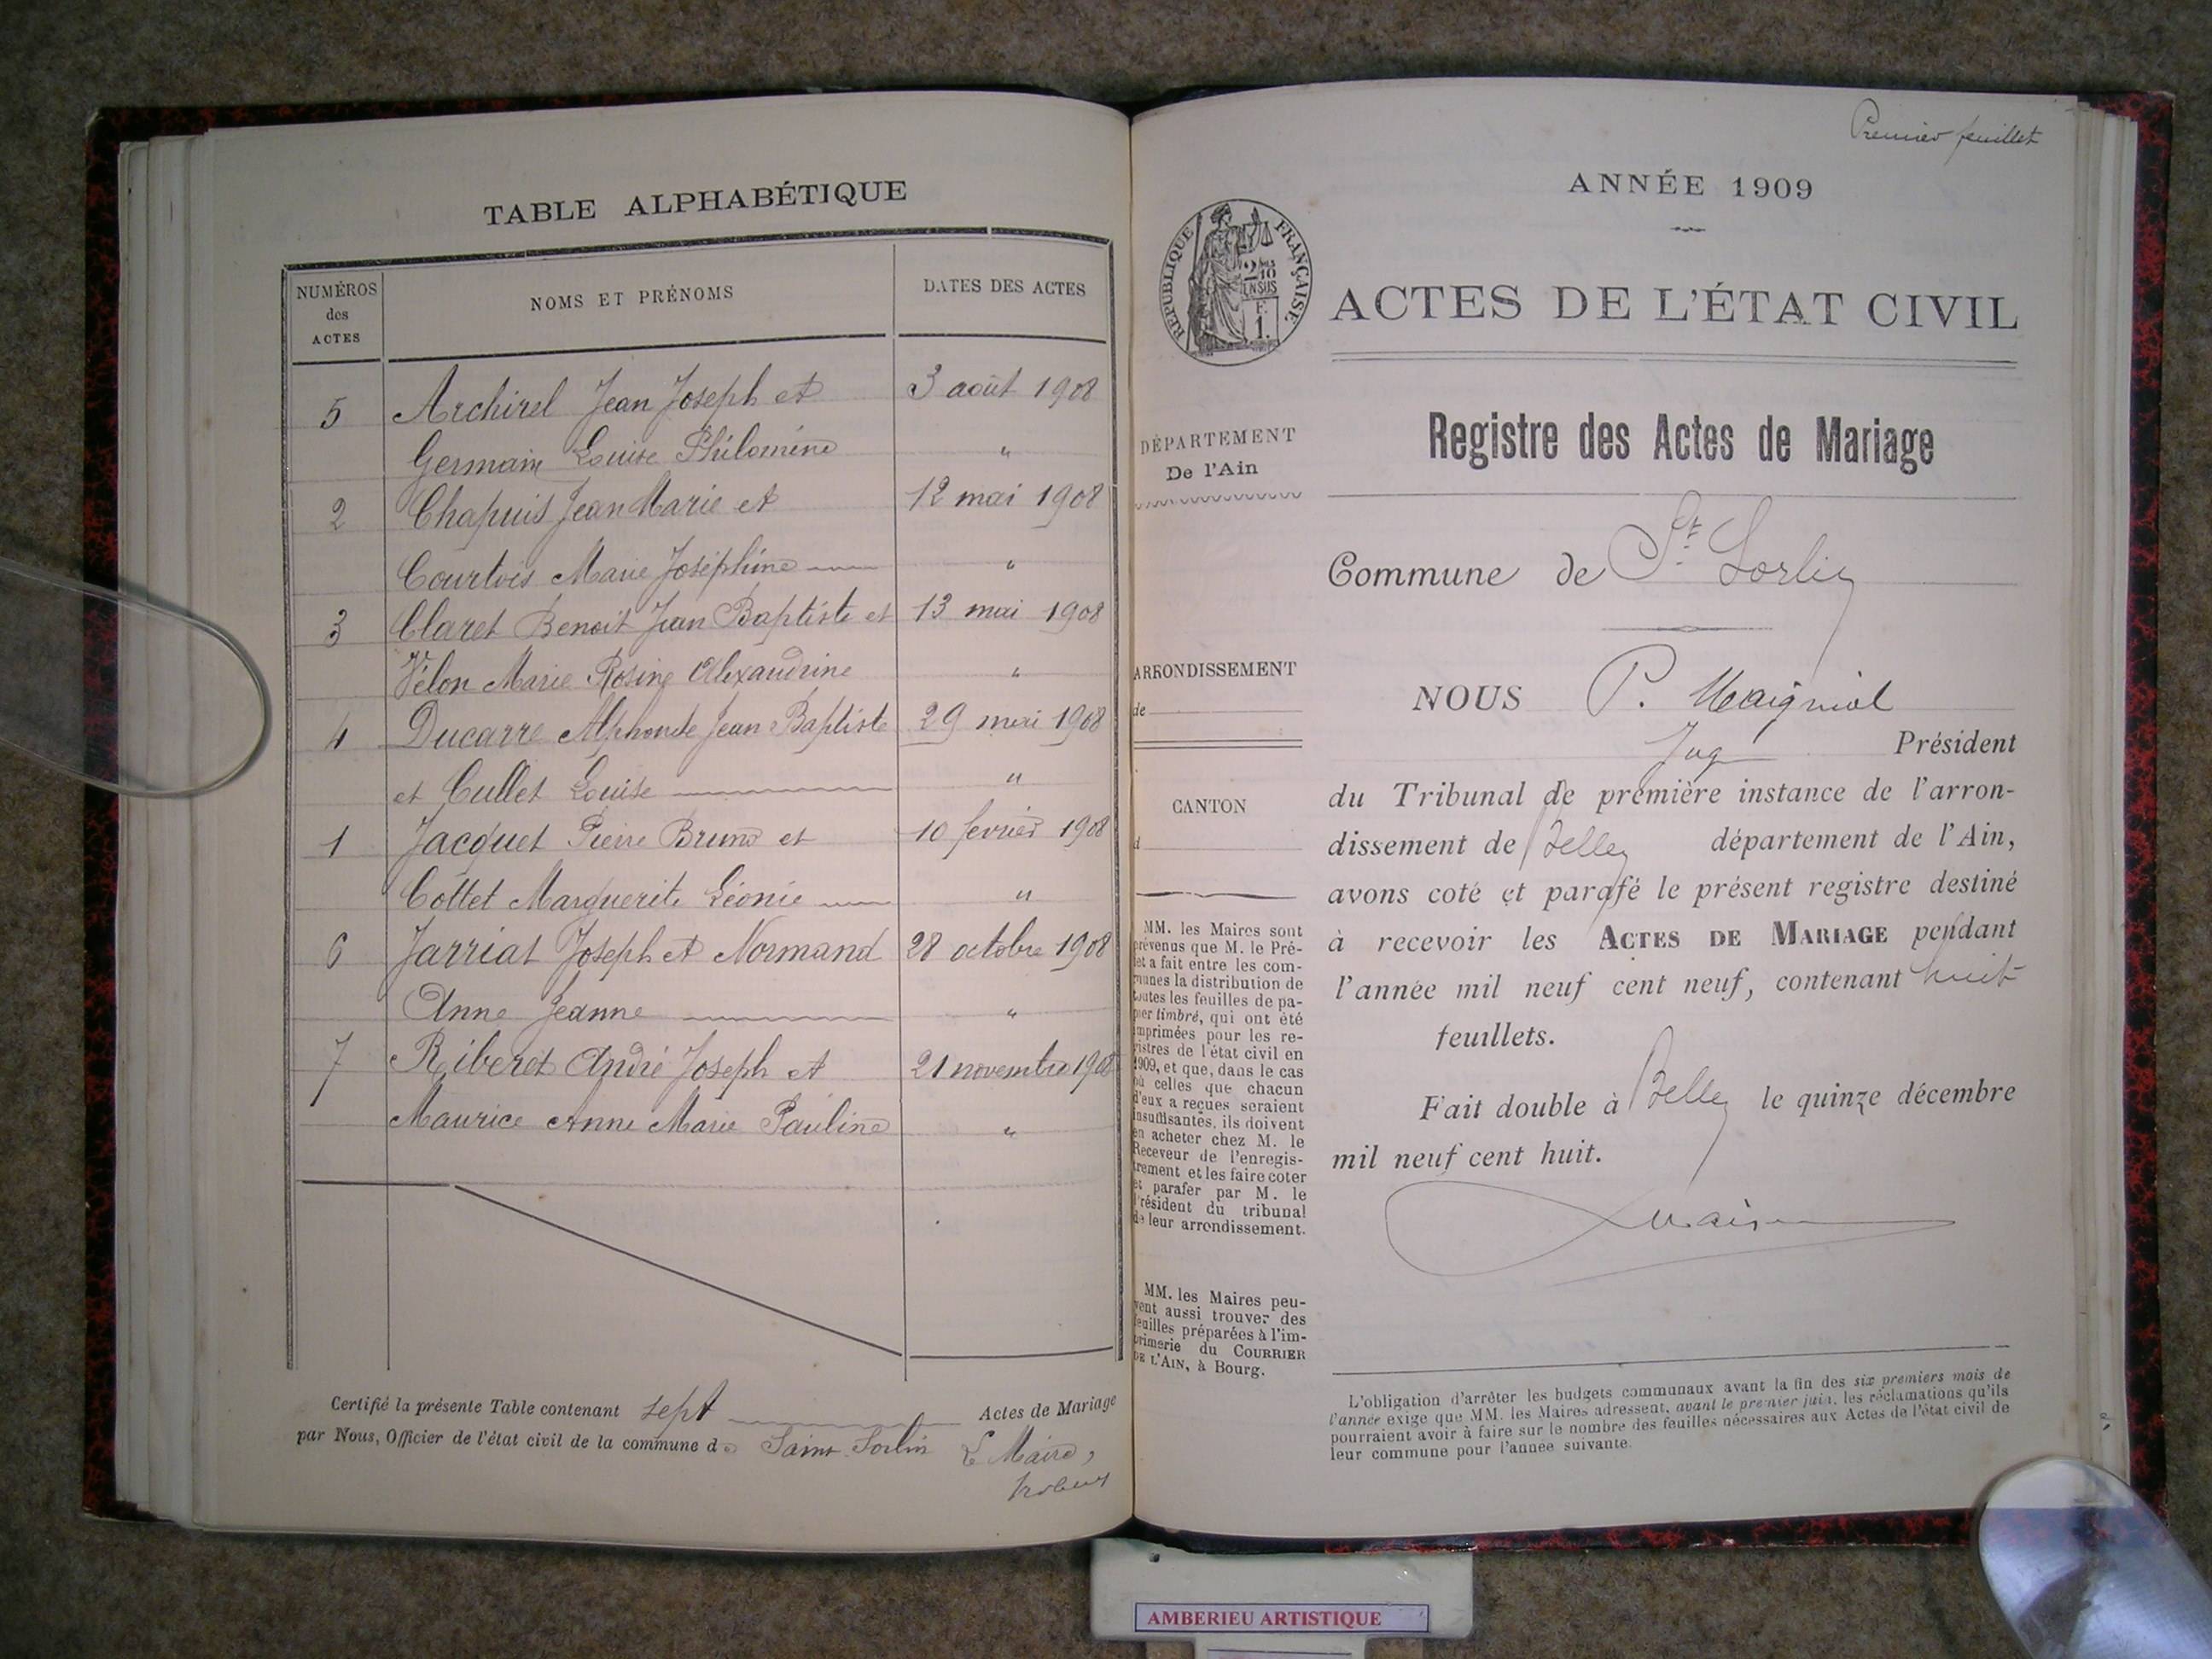 TABLE ALPHABÉTIQUE
NUMÉROS des ACTES
NOMS ET PRÉNOMS
DATES DES ACTES
5 Archirel Jean Joseph et 3 août 1908
Germain Louise Philomène "
2 Chapuis Jean Marie et 12 mai 1908
Courtois Marie Joséphine "
3 Claret Benoit Jean Baptiste et 13 mai 1908
Vélon Marie Rosine Alexandrine "
4 Ducarre Alphonse Jean Baptiste 29 mai 1908
et Cullet Louise "
1 Jacquet Pierre Bruno et 10 fevrier 1908
Cottet Marguerite Léonie "
6 Jarriat Joseph et Normand 28 octobre 1908
Anne Jeanne "
7 Riberet André Joseph et 21 novembre 1908
Maurice Anne Marie Pauline "
Certifié la présente Table contenant sept Actes de Mariage
par Nous, Officier de l'état civil de la commune de Saint Sorlin Le Maire,
Premier feuillet
ANNÉE 1909
RÉPUBLIQUE FRANÇAISE
2/10 EN SUS
F. 1.
ACTES DE L'ÉTAT CIVIL
DÉPARTEMENT
De l'Ain
ARRONDISSEMENT
de
CANTON
d
MM. les Maires sont
prévenus que M. le Pré-
fet a fait entre les com-
munes la distribution de
toutes les feuilles de pa-
pier timbré, qui ont été
imprimées pour les re-
gistres de l'état civil en
1909, et que, dans le cas
où celles que chacun
d'eux a reçues seraient
insuffisantes, ils doivent
en acheter chez M. le
Receveur de l'enregis-
trement et les faire coter
et parafer par M. le
Président du tribunal
de leur arrondissement.
MM. les Maires peu-
vent aussi trouver des
feuilles préparées à l'im-
primerie du COURRIER
DE L'AIN, à Bourg.
Registre des Actes de Mariage
Commune de St. Sorlin
NOUS P. Maigniol
Juge Président
du Tribunal de première instance de l'arron-
dissement de Belley département de l'Ain,
avons coté et parafé le présent registre destiné
à recevoir les ACTES DE MARIAGE pendant
l'année mil neuf cent neuf, contenant huit
feuillets.
Fait double à Belley le quinze décembre
mil neuf cent huit.
L'obligation d'arrêter les budgets communaux avant la fin des six premiers mois de
l'année exige que MM. les Maires adressent, avant le premier juin, les réclamations qu'ils
pourraient avoir à faire sur le nombre des feuilles nécessaires aux Actes de l'état civil de
leur commune pour l'année suivante.
AMBERIEU ARTISTIQUE